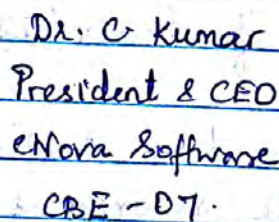 Dr. C. Kumar
President & CEO
eNova Software
CBE - 07.